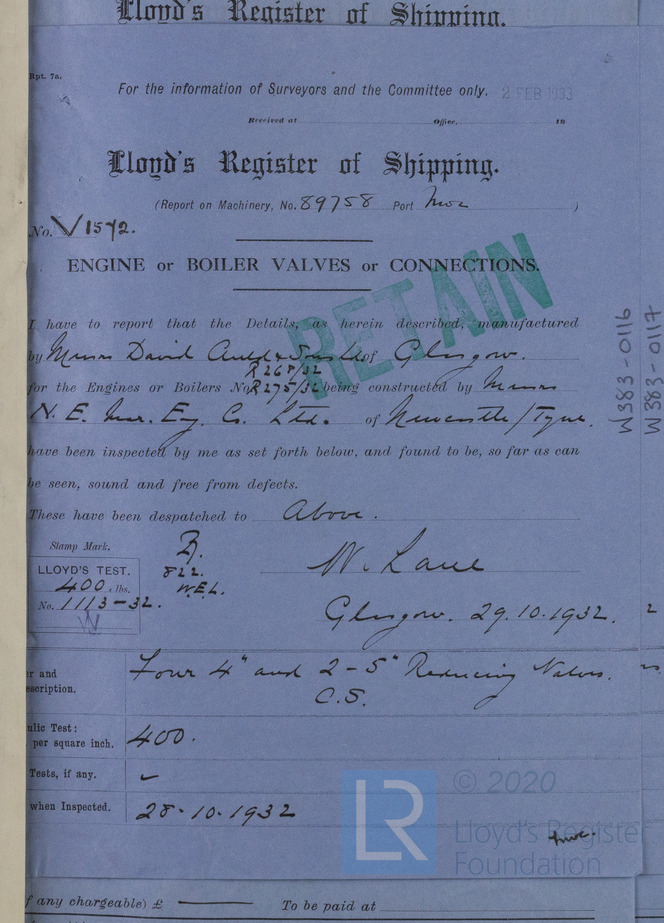 Lloyd's Register of Shipping.
Rpt. 7a.
For the information of Surveyors and the Committee only. 2 FEB 1933
Received at Office, 19
Lloyd's Register of Shipping.
(Report on Machinery, No. 89758 Port Nwc )
No. V 1572.
ENGINE or BOILER VALVES or CONNECTIONS.
RETAIN
I have to report that the Details, as herein described, manufactured
by Messrs David Auld & Sons Ld of Glasgow.
R268/32
for the Engines or Boilers No. R275/32 being constructed by Messrs
N. E. Mar. Eng Co. Ltd. of Newcastle/Tyne.
have been inspected by me as set forth below, and found to be, so far as can
be seen, sound and free from defects.
These have been despatched to Above.
Stamp Mark.
LLOYD'S TEST.
400 lbs.
No. 1113-32.
822.
W.E.L.
W.
Glasgow. 29.10.1932.
er and
escription.
Four 4" and 2-5" Reducing Valves.
C.S.
ulic Test:
per square inch.
400.
Tests, if any.
when Inspected.
28-10-1932
W383-0116
W383-0117
LR
© 2020
Lloyd's Registe
Foundation
nwc.
f any chargeable) £ To be paid at